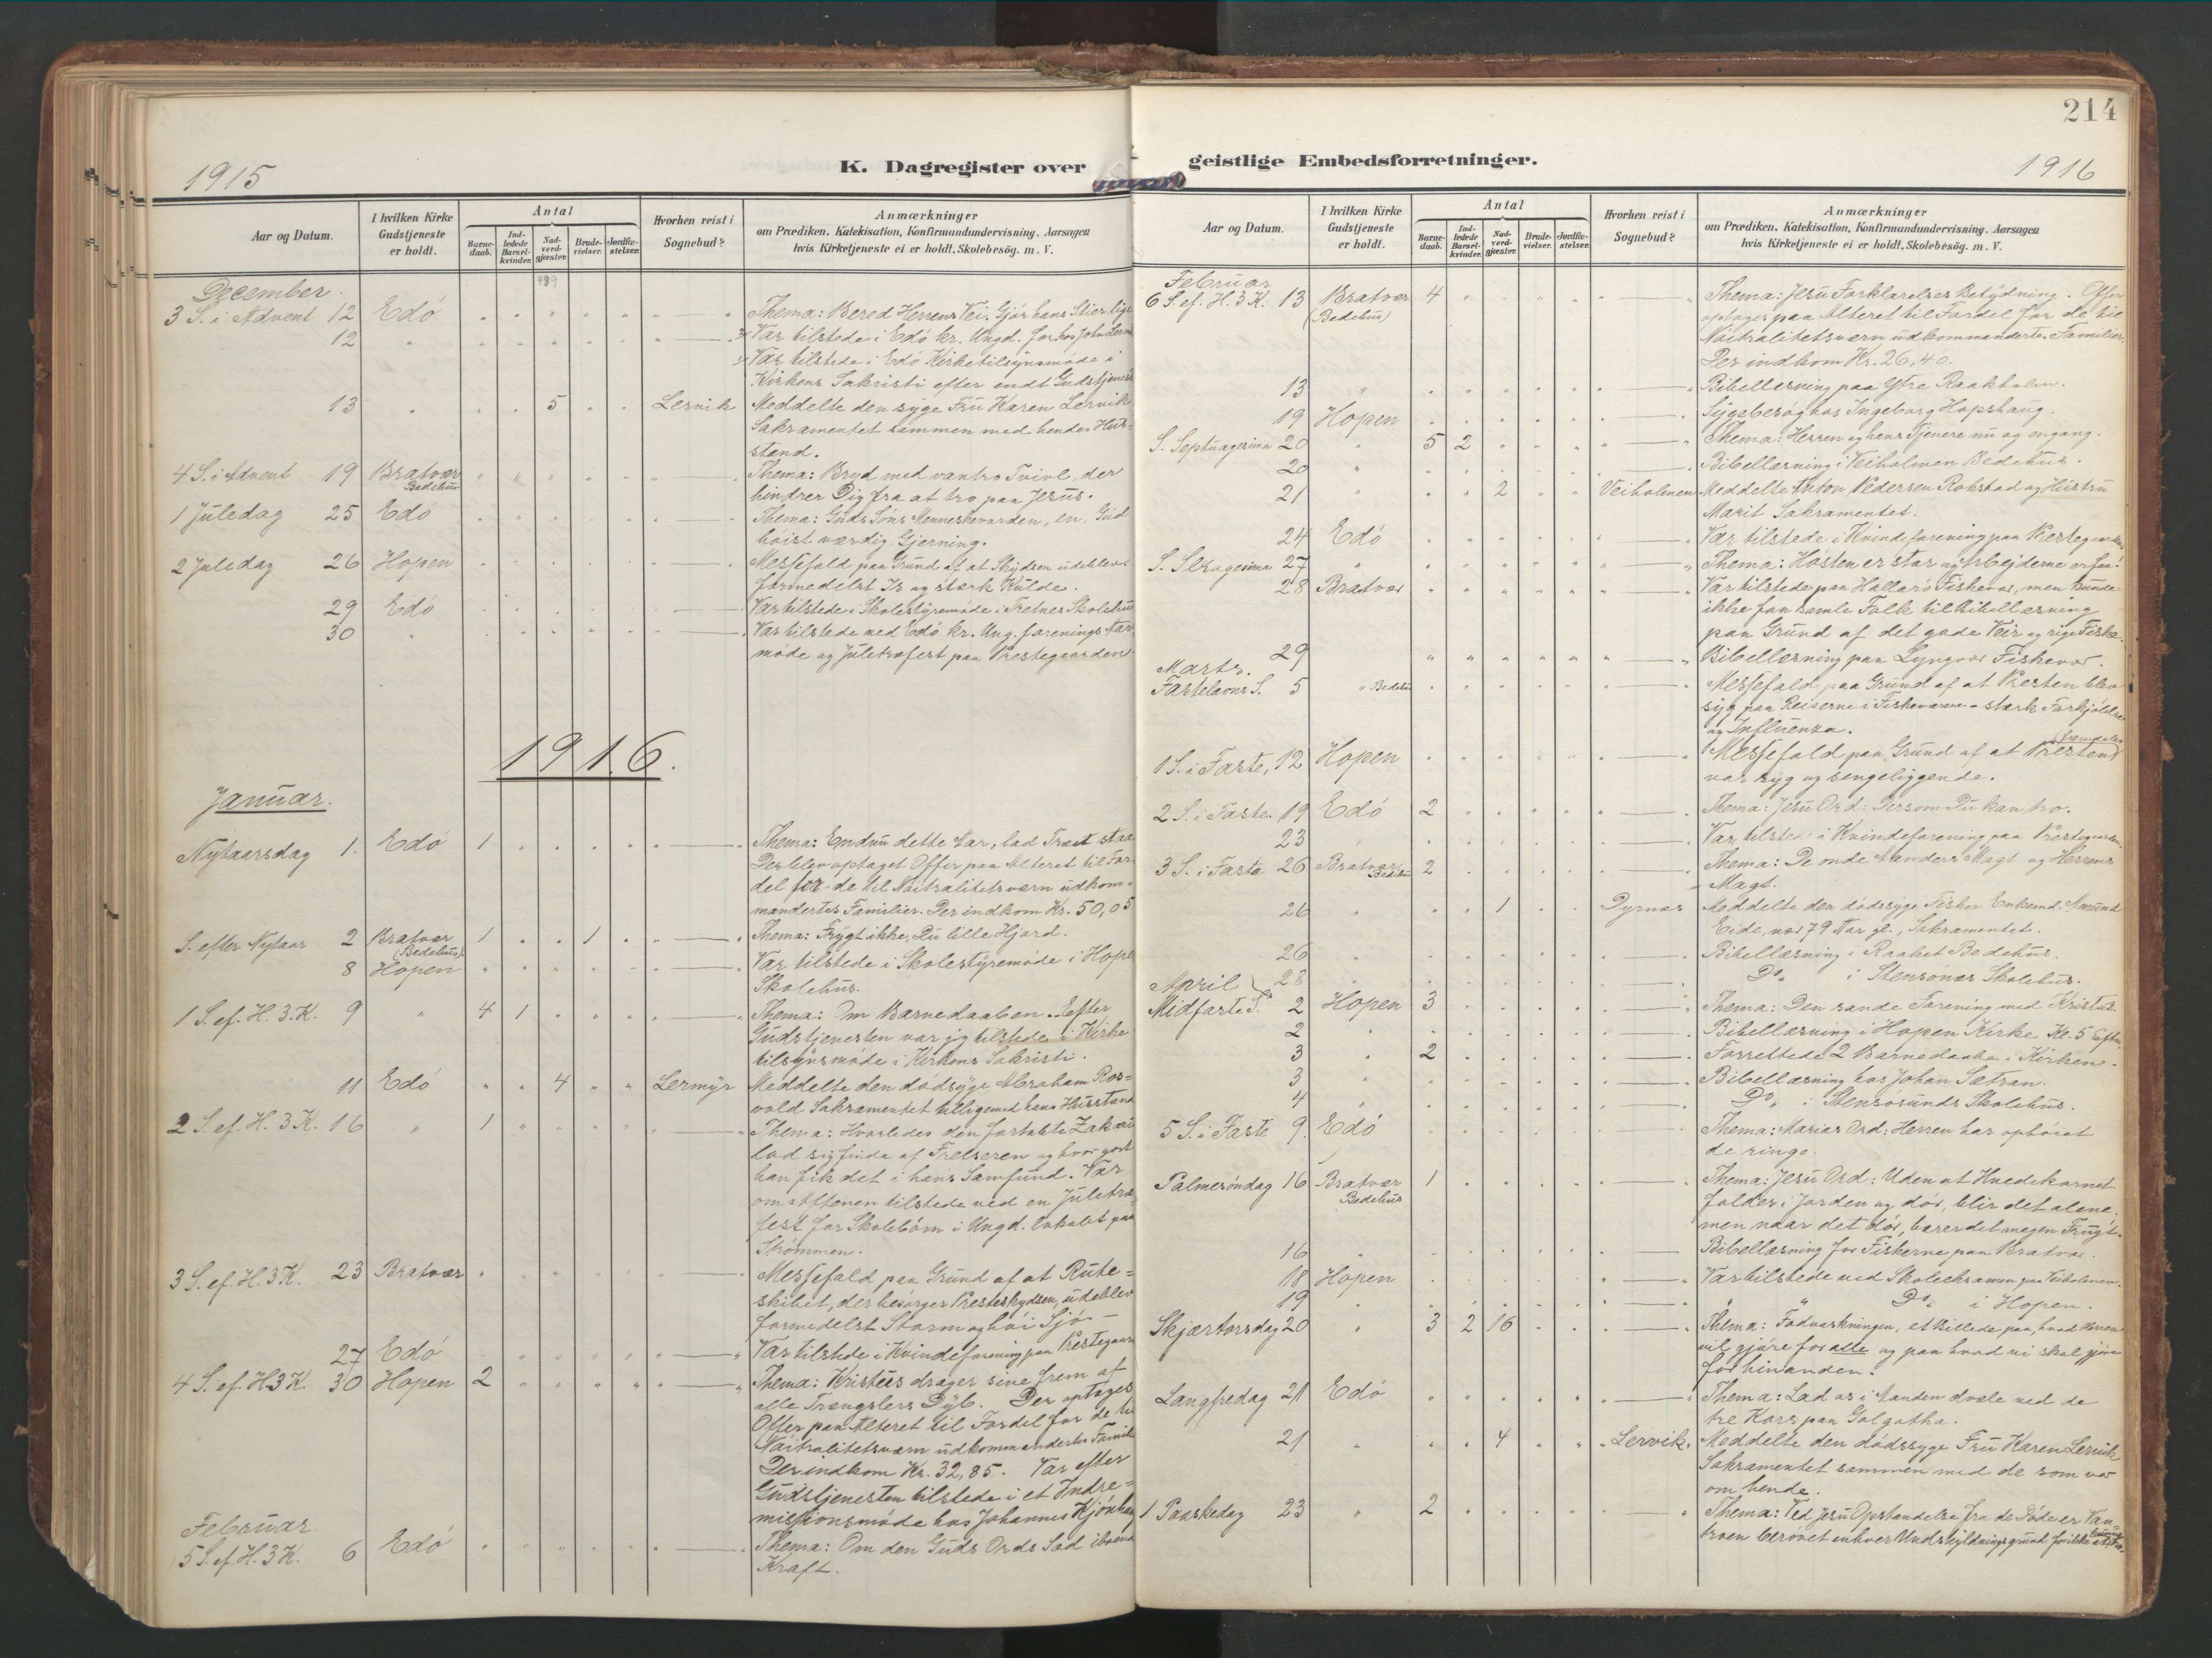 1915
K. Dagregister over
Aar og Datum.
I hvilken Kirke Gudstjeneste er holdt.
Antal
Barne-daab.
Ind-ledede Barsel-kvinder.
Nad-verd-gjæster.
Brude-vielser.
Jordfæ-stelser.
Hvorhen reist i Sognebud?
Anmærkninger
om Prædiken. Katekisation, Konfirmandundervisning. Aarsagen
hvis Kirketjeneste ei er holdt. Skolebesög. m. V.
489
December.
3 S. i Advent 12 Edö Thema: Bered Herrens Vei. Gjör hans Stier lige
12 " Var tilstede i Edö kr. Ungd. for. hos John
Var tilstede i Edö Kirketilsynsmöde i
Kirkens Sakristi efter endt Gudstjeneste
13 " 5 Lervik Meddelte den syge Fru Karen Lervik
Sakramentet sammen med hendes Hus-
stand.
4 S. i Advent 19 Bratvær Bedehus Thema: Bryd med vantro Tvivl, der
hindrer Dig fra at tro paa Jesus.
1 Juledag 25 Edö Thema: Guds Söns Menneskevorden, en Gud
höist værdig Gjerning.
2 Juledag 26 Hopen Messefald paa Grund af at Skydsen udeblev
formedelst Is og stærk Kulde.
29 Edö Var tilstede i Skolestyremöde i Skolehus
30 " Var tilstede ved Edö kr. Ung. forenings Aar-
möde og Juletræfest paa Prestegaarden
1916.
Januar.
Nytaarsdag 1. Edö 1 Thema: Endnu dette Aar, lad Træet staa
Der blev optaget Offer paa Alteret til For-
del for de til Nöitralitetsværn udkom-
mandertes Familier. Der indkom Kr. 50,05
S. efter Nytaar 2 Bratvær (Bedehus) 1 1 Thema: Frygt ikke, Du lille Hjord.
8 Hopen Var tilstede i Skolestyremöde i Hopen
Skolehus.
1 S. ef. H. 3. K. 9 " 4 1 Thema: Om Barnedaaben. Efter
Gudstjenesten var jeg tilstede i Kirke
tilsynsmöde i Kirkens Sakristi.
11 Edö 4 Lermyr Meddelte den dödsyge Abraham Ros-
vold Sakramentet tilligemed hans Husstand
2 S. ef. H. 3 K. 16 " 1 Thema: Hvorledes den fortabte Zakæus
lod sig finde af Frelseren og hvor godt
han fik det i hans Samfund. Var
om Aftenen tilstede ved en Juletræ-
fest for Skolebörn i Ungd. lokalet paa
Strömmen.
3 S. ef. H. 3 K. 23 Bratvær Messefald paa Grund af at Rute-
skibet, der besörger Presteskydsen, udeblev
formedelst Storm og höi Sjö.
27 Edö Var tilstede i Kvindeforening paa Prestegaarden
4 S. ef. H 3 K. 30 Hopen 2 Thema: Kristus drager sine frem af
alle Trængslers Dyb. Der optages
Offer paa Alteret til Fordel for de til
Nöitralitetsværn udkommandertes Famili
Der indkom Kr. 32,85. Var efter
Gudstjenesten tilstede i et Indre-
missionsmöde hos Johannes
Februar
5 S. ef. H. 3 K. 6 Edö Thema: Om den Guds Ords Sæd iboende
Kraft.
214
geistlige Embedsforretninger.
1916
Aar og Datum.
I hvilken Kirke Gudstjeneste er holdt.
Antal
Barne-daab.
Ind-ledede Barsel-kvinder.
Nad-verd-gjæster.
Brude-vielser.
Jordfæ-stelser.
Hvorhen reist i Sognebud?
Anmærkninger
om Prædiken. Katekisation, Konfirmandundervisning. Aarsagen
hvis Kirketjeneste ei er holdt. Skolebesög. m. V.
Februar
6 S. ef. H. 3 K. 13 Bratvær (Bedehus) 4 Thema: Jesu Forklarelses Betydning. Offer
optages paa Alteret til Fordel for de til
Nöitralitetsværn udkommandertes Familier.
Der indkom Kr. 26,40.
13 " Bibellæsning paa Ytre Raakholm.
19 Hopen Sygebesög hos Ingeborg Hopshaug.
S. Septuagesima 20 " 5 2 Thema: Herren og hans Tjenere nu og engang.
20 " Bibellæsning i Veiholmen Bedehus.
21 " 2 Veiholmen Meddelte Anton Pedersen Rokstad og Hustru
Marit Sakramentet.
24 Edö Var tilstede i Kvindeforening paa Prestegaarden
S. Sexagesima 27 " Thema: Hösten er stor og Arbejderne er faa!
28 Bratvær Var tilstede paa Hallarö Fiskevær, men kunde
ikke faa samle Folk til Bibellæsning
paa Grund af det gode Veir og rige Fiske.
29 Bibellæsning paa Lyngvær Fiskevær.
Marts.
Fastelavns S. 5 " Bedehus Messefald paa Grund af at Presten blev
syg paa Reiserne i Fiskeværene - stærk Forkjölelse
og Influenza.
1 S. i Faste, 12 Hopen Messefald paa Grund af at Presten fremdeles
var syg og sengeliggende.
2 S. i Faste. 19 Edö 2 Thema: Jesu Ord: Dersom Du kan tro.
23 Var tilstede i Kvindeforening paa Prestegaarden.
3 S. i Faste 26 Bratvær Bedehus 2 Thema: De onde Aanders Magt og Herrens
Magt.
26 " 1 Dyrnæs Meddelte den dödssyge Fisker Enkemd. Amund
Eide, nær 79 Aar gl., Sakramentet.
26 Bibellæsning i Raaket Bedehus.
28 " Do. i Stensönes Skolehus.
April
Midfaste S. 2 Hopen 3 Thema: Den sande Forening med Kristus.
2 " Bibellæsning i Hopen Kirke Kl. 5 Eftm.
3 " 2 Forrettede 2 Barnedaabe i Kirken.
3 " Bibellæsning hos Johan Sætran.
4 " Do. i Stensosunds Skolehus.
5 S. i Faste 9. Edö Thema: Marias Ord: Herren har ophöiet
de ringe.
Palmesöndag 16 Bratvær Bedehus 1 Thema: Jesu Ord: Uden at Hvedekornet
falder i Jorden og dör, blir det alene.
men naar det dör, bærer det megen Frugt.
16 " Bibellæsning for Fiskerne paa Bratvær.
18 Hopen Var tilstede ved Skoleeksamen paa Veiholmen.
19 " " " Do. i Hopen.
Skjærtorsdag 20 " 3 2 16 Thema: Fodvaskningen, et Billede paa, hvad Herren
vil gjöre for alle og paa hvad vi skal gjöre
for hinanden.
Langfredag 21 Edö Thema: Lad os i Aanden dvæle ved de
tre Kors paa Golgatha.
21 " 4 Lervik. Meddelte den dödssyge Fru Karen Lervik
Sakramentet sammen med de som var
om hende.
1 Paaskedag 23 " 2 Thema: Ved Jesu Opstandelse fra de Döde er Van-
troen berövet enhver Undskyldningsgrund for ikke at